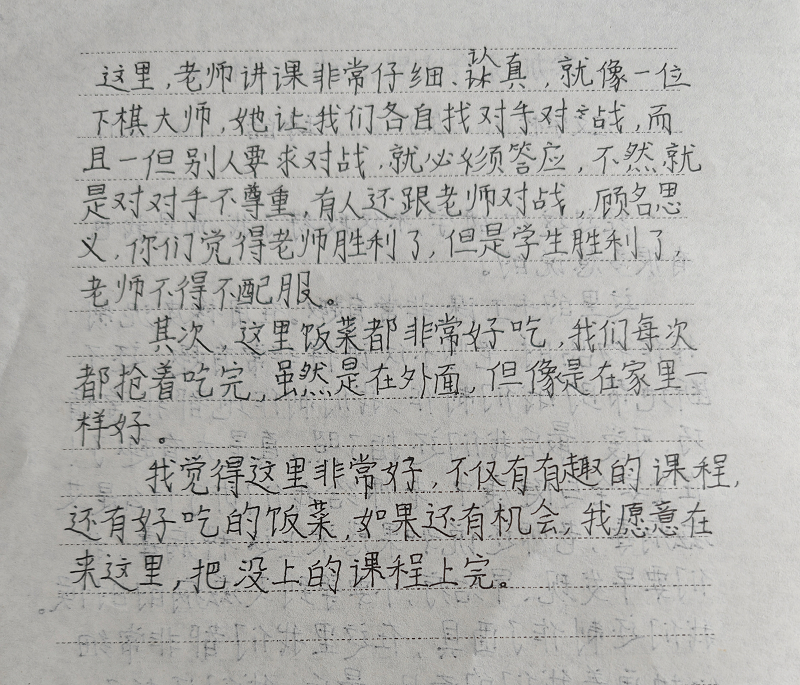 这里,老师讲课非常仔细、认真,就像一位
下棋大师,她让我们各自找对手对战,而
且一但别人要求对战,就必须答应,不然就
是对对手不尊重,有人还跟老师对战,顾名思
义,你们觉得老师胜利了,但是学生胜利了,
老师不得不配服。
其次,这里饭菜都非常好吃,我们每次
都抢着吃完,虽然是在外面,但像是在家里一
样好。
我觉得这里非常好,不仅有有趣的课程,
还有好吃的饭菜,如果还有机会,我愿意在
来这里,把没上的课程上完。